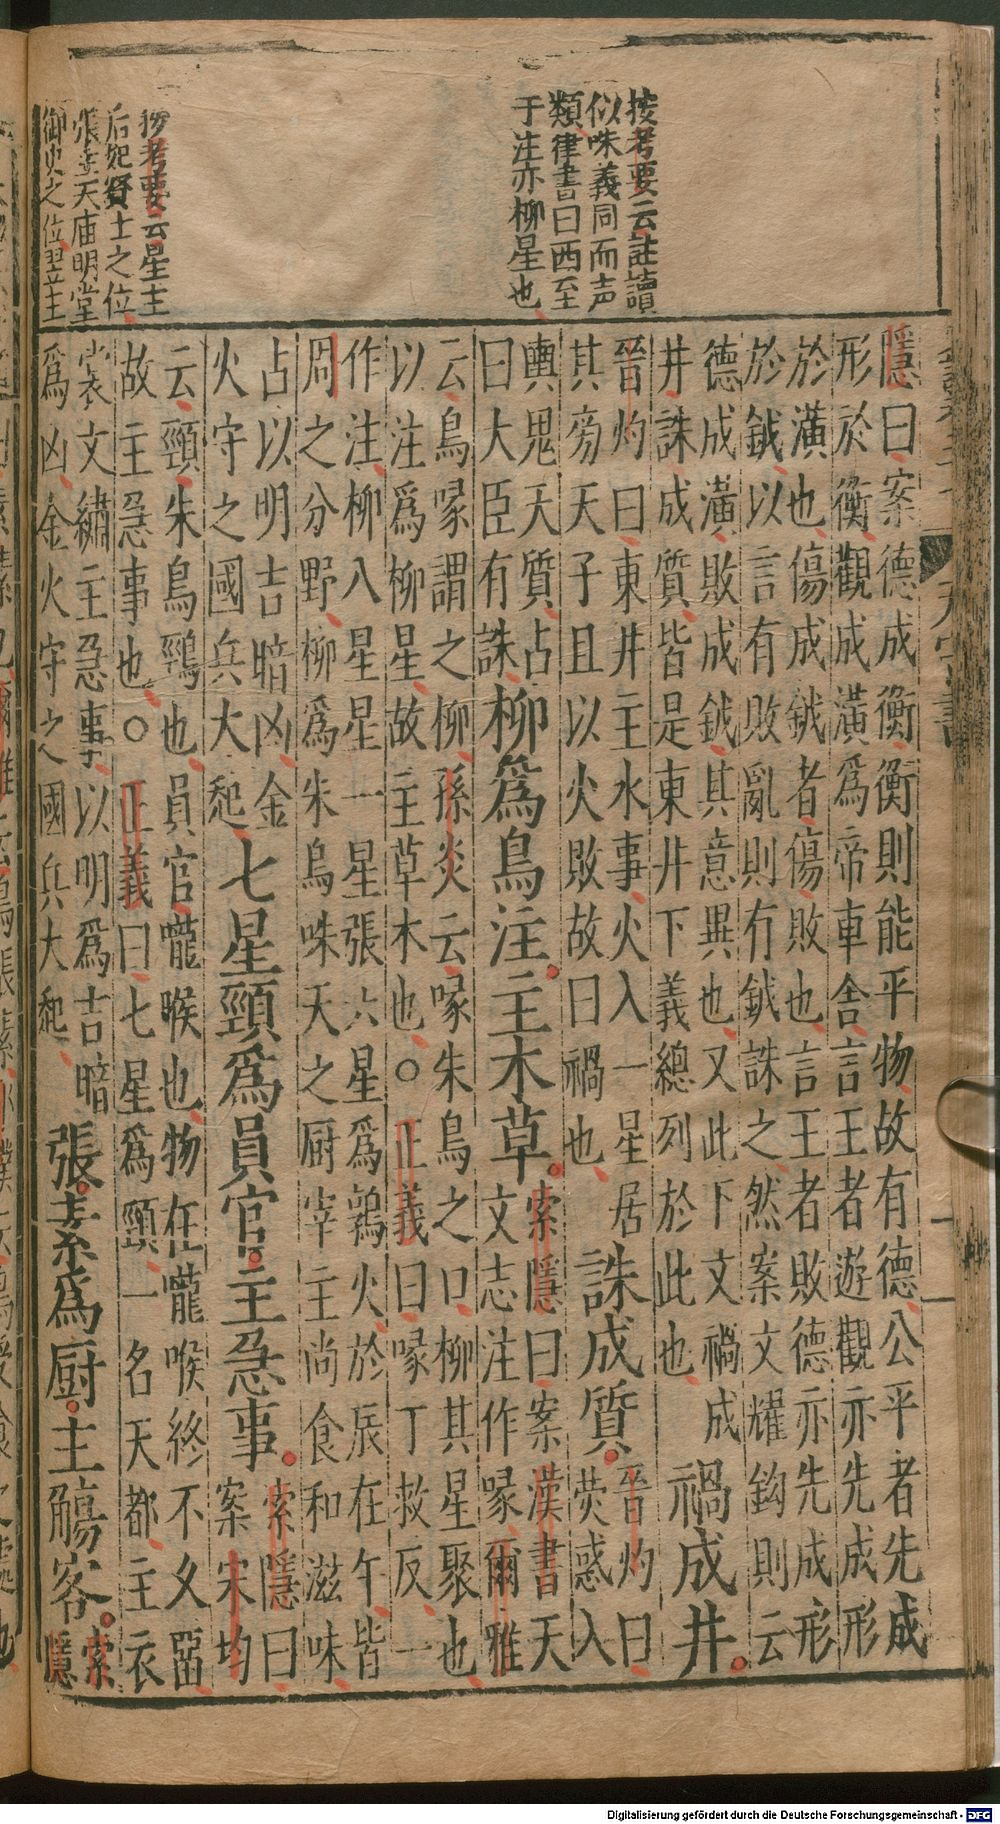 按考要云註讀
似咮義同而声
類律書曰西至
于注亦柳星也
按考要云星主
后妃賢士之位
張主天庙明堂
御史之位翌主
隱曰案德成衡衡則能平物故有德公平者先成
形於衡觀成潢為帝車舍言王者遊觀亦先成形
於潢也傷成鉞者傷敗也言王者敗德亦先成形
於鉞以言有敗亂則有鉞誅之然案文耀鈎則云
德成潢敗成鉞其意異也又此下文禍成
井誅成質皆是東井下義總列於此也
禍成井
晉灼曰東井主水事火入一星居
其旁天子且以火敗故曰禍也
誅成質
晉灼曰
熒惑入
輿鬼天質占
曰大臣有誅
柳爲鳥注主木草
索隱曰案漢書天
文志注作喙爾雅
云鳥喙謂之柳孫炎云喙朱鳥之口柳其星聚也
以注爲柳星故主草木也○正義曰喙丁救反一
作注柳八星星一星張六星爲鶉火於辰在午皆
周之分野柳爲朱鳥咮天之厨宰主尚食和滋味
占以明吉暗凶金
火守之國兵大起
七星頸爲員官主急事
索隱曰
案宋均
云頸朱鳥頸也員官嚨喉也物在嚨喉終不久畱
故主急事也○正義曰七星爲頸一名天都主衣
裳文繡主急事以明爲吉暗
爲凶金火守之國兵大起
張素爲厨主觴客
索
隱
Digitalisierung gefördert durch die Deutsche Forschungsgemeinschaft - DFG